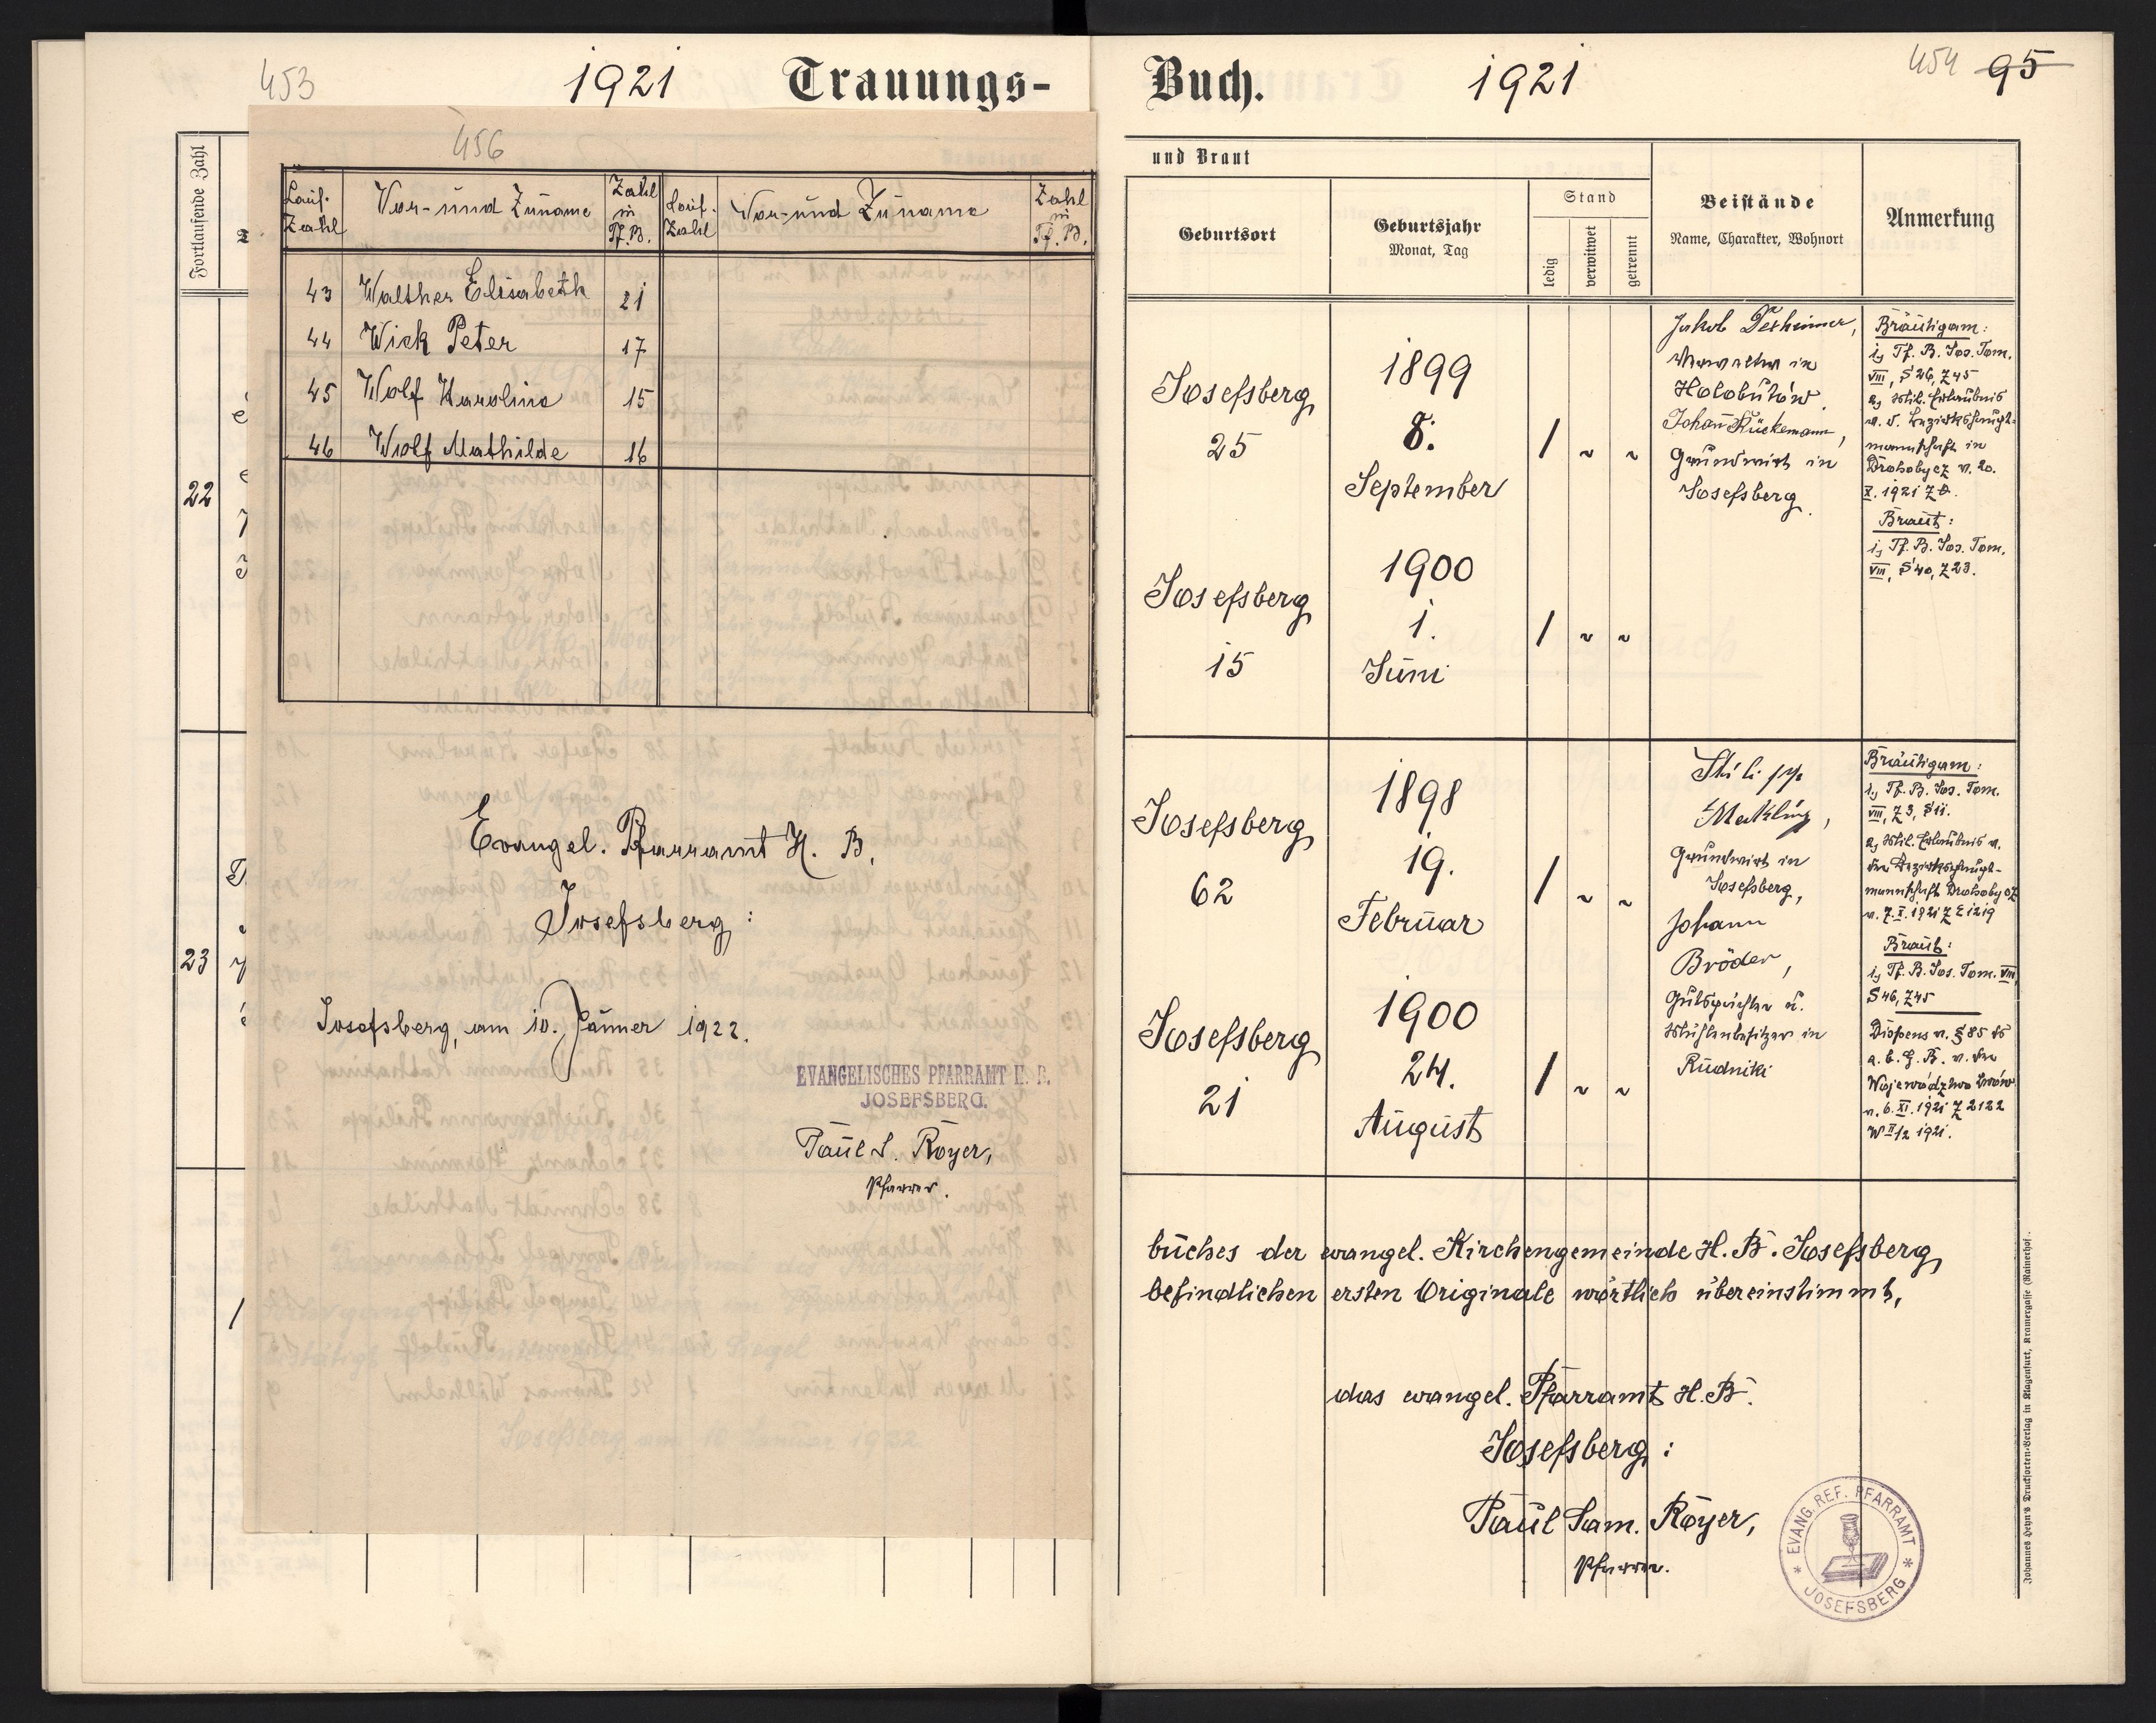 453
1921 Trauungs-
Fortlaufende Zahl
22
23
456
Lauf. Zahl
Vor- und Zuname
Zahl in Tf. B.
Lauf. Zahl
Vor- und Zuname
Zahl in Tf. B.
43 Walther Elisabeth 21
44 Wick Peter 17
45 Wolf Karolina 15
46 Wolf Mathilde 16
Evangel. Pfarramt H. B.
Josefsberg:
Josefsberg, am 10. Jänner 1922.
EVANGELISCHES PFARRAMT H. B.
JOSEFSBERG.
Paul S. Royer,
Pfarrer.
Buch. 1921
454 95
und Braut
Geburtsort
Geburtsjahr
Monat, Tag
Stand
ledig
verwitwet
getrennt
Beistände
Name, Charakter, Wohnort
Anmerkung
Josefsberg
25
1899
8.
September
/ „ „
Josefsberg
15
1900
1.
Juni
/ „ „
Jakob
Verwalter in
Holobutów.
Johann Rückemann,
Grundwirt in
Josefsberg.
Bräutigam:
1, Tf. B. Jos. Tom.
VIII, S 26, Z 45
2, Mil. Erlaubnis
v. d. Bezirkshaupt-
mannschaft in
Drohobycz v. 20.
X. 1921
Braut:
1, Tf. B. Jos. Tom.
VIII, S 40, Z 23.
Josefsberg
62
1898
19.
Februar
/ „ „
Josefsberg
21
1900
24.
August
/ „ „
Philipp
Mekling,
Grundwirt in
Josefsberg,
Johann
Bröder,
Gutspächter u.
Mühlenbesitzer in
Rudniki
Bräutigam:
1, Tf. B. Jos. Tom.
VIII, Z 3, S 11.
2, Mil. Erlaubnis v.
der Bezirkshaupt-
mannschaft Drohobycz
v. 7. X. 1921 Z 21219
Braut:
1, Tf. B. Jos. Tom. VIII
S 46, Z 45
Dispens v. § 85 ds
a. b. G. B. v. der
Województwo Lwów
v. 6. XI. 1921 Z 2122
W II/2 1921.
buches der evangel. Kirchengemeinde H. B. Josefsberg
befindlichen ersten Originale wörtlich übereinstimmt,
das evangel. Pfarramt H. B.
Josefsberg:
Paul Sam. Royer,
Pfarrer.
* EVANG. REF. PFARRAMT *
JOSEFSBERG
Johannes Heyn's Drucksorten-Verlag in Klagenfurt, Kramergasse (Rainerhof).